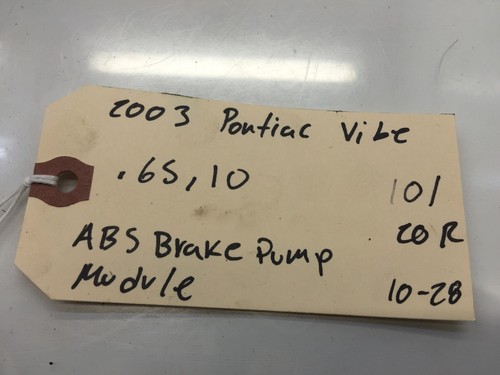 2003 Pontiac Vibe
.65,10
101
ABS Brake Pump
20R
Module
10-28